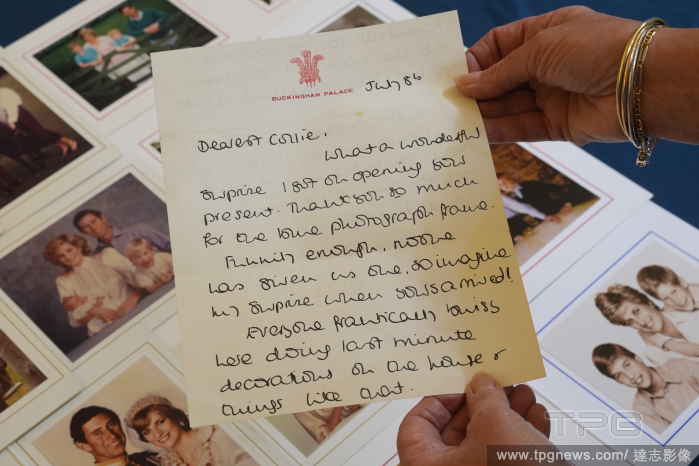 BUCKINGHAM PALACE
July 86
Dearest Collie,
What a wonderful
surprise I got on opening your
present. Thank you so much
for the lovely photograph frame.
Funnily enough, no one
has given us one, so imagine
my surprise when yours arrived!
Everyone frantically busy
here doing last minute
decorations on the house &
things like that.
TPG
www.tpgnews.com/ 達志影像